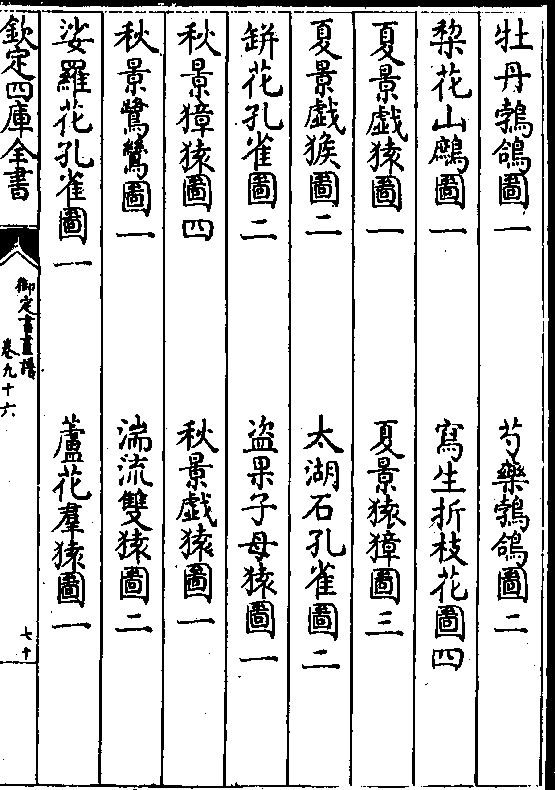 牡丹鵓鴿圖一 芍藥鵓鴿圖二
棃花山鷓圖一 寫生折枝花圖四
夏景戲猿圖一 夏景猿獐圖三
夏景戲猴圖二 太湖石孔雀圖二
缾花孔雀圖二 盜果子母猿圖一
秋景獐猿圖四 秋景戲猿圖一
秋景鷺鷥圖一 湍流雙猿圖二
娑羅花孔雀圖一 蘆花羣猿圖一
欽定四庫全書
御定書畫譜
卷九十六
七十